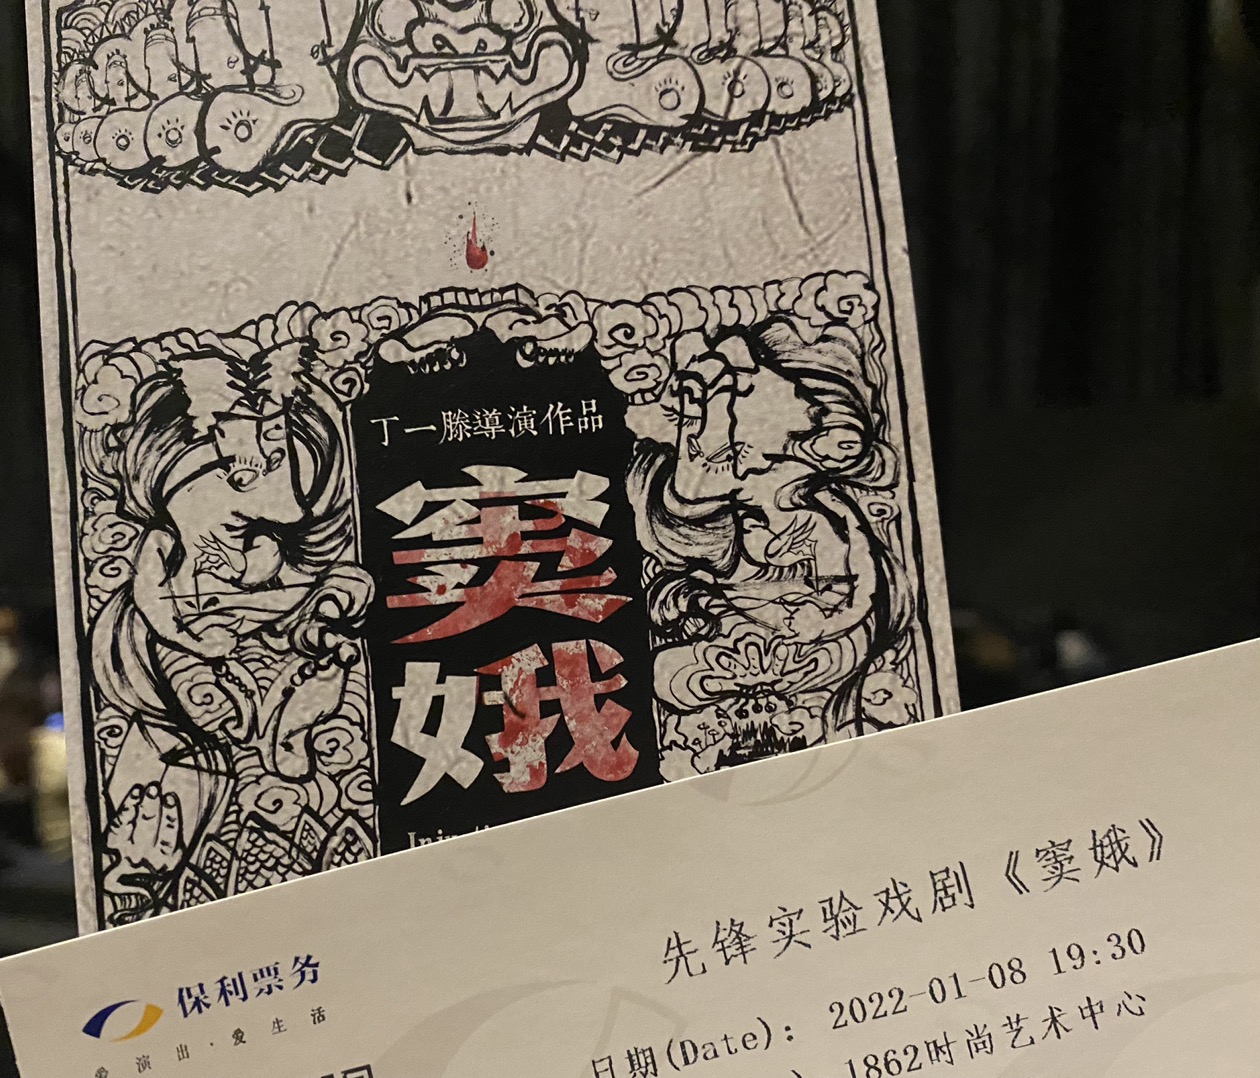 丁一滕導演作品
窦
娥
先锋实验戏剧《窦娥》
保利票务
爱演出·爱生活
日期(Date): 2022-01-08 19:30
1862时尚艺术中心